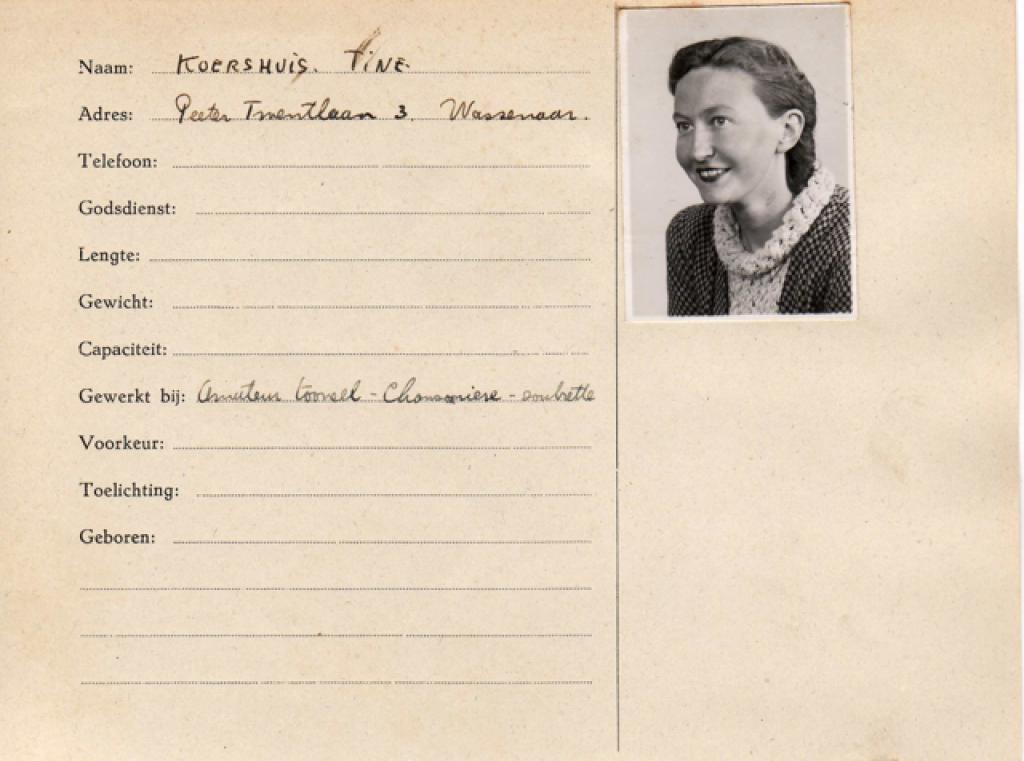 Naam: KOERSHUIS. TINE.
Adres: Peeter Twentlaan 3. Wassenaar.
Telefoon:
Godsdienst:
Lengte:
Gewicht:
Capaciteit:
Gewerkt bij: Amateur tooneel - Chansoniere - soubrette
Voorkeur:
Toelichting:
Geboren: